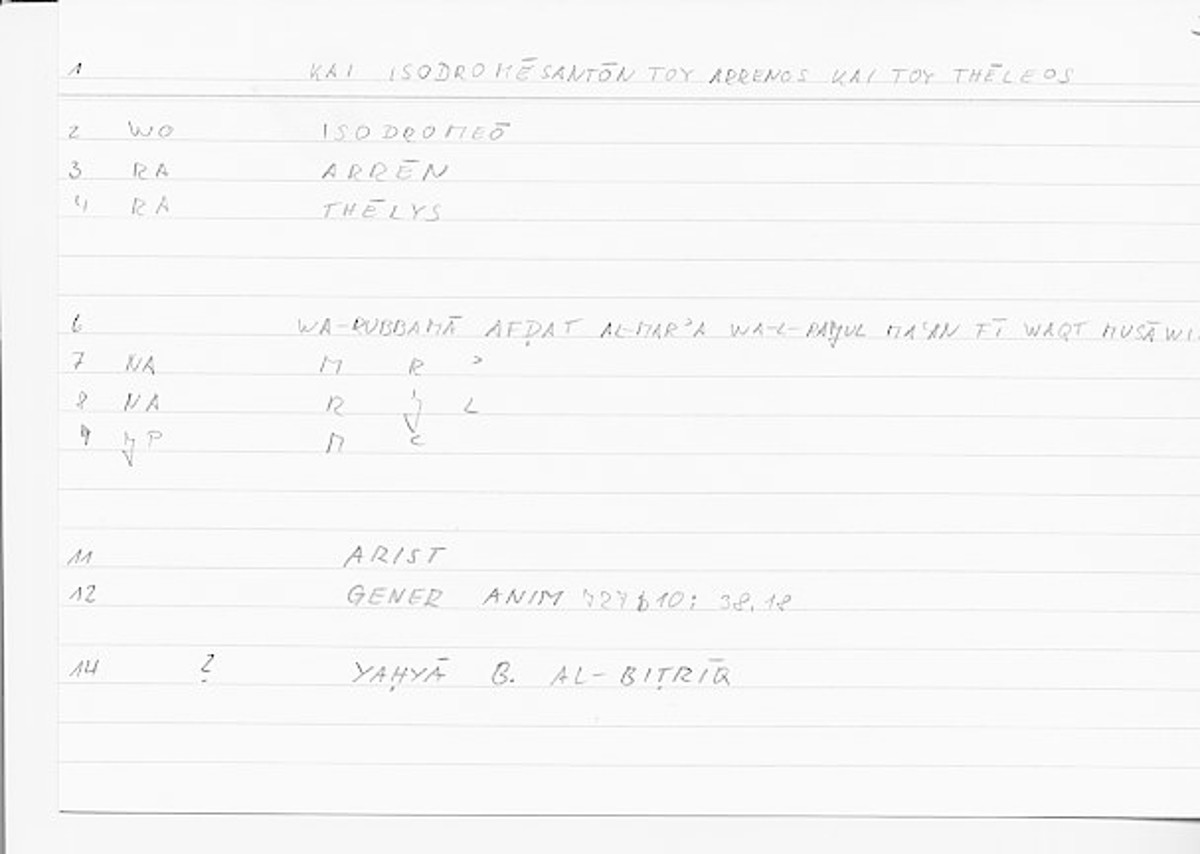 1 KAI ISODROMĒSANTŌN TOY ARRENOS KAI TOY THĒLEOS
2 WO ISODROMEŌ
3 RA ARRĒN
4 RA THĒLYS
6 WA-RUBBAMĀ AFḌAT AL-MARʾA WA-L-RAǧUL MAʿAN FĪ WAQT MUSĀWI
7 NA M R ʾ
8 NA R ǧ L
9 ǧP M ʿ
11 ARIST
12 GENER ANIM 727b10; 38.18
14 ? YAḤYĀ B. AL-BIṬRĪQ